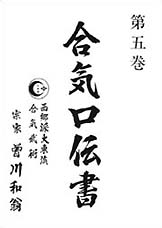 第五巻
合気口伝書
西郷派大東流
合気武術
宗家 曽川和翁